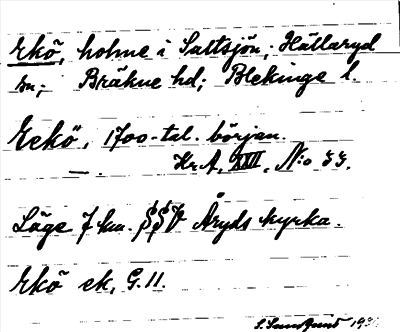 Ekö, holme i Saltsjön; Hällaryd
sn; Bräkne hd; Blekinge l.
Eekö, 1700-tal. början.
— . KrA, XXIII, N:o 33.
Läge 7 km. SSV Åryds kyrka.
Ekö ek, G.11.